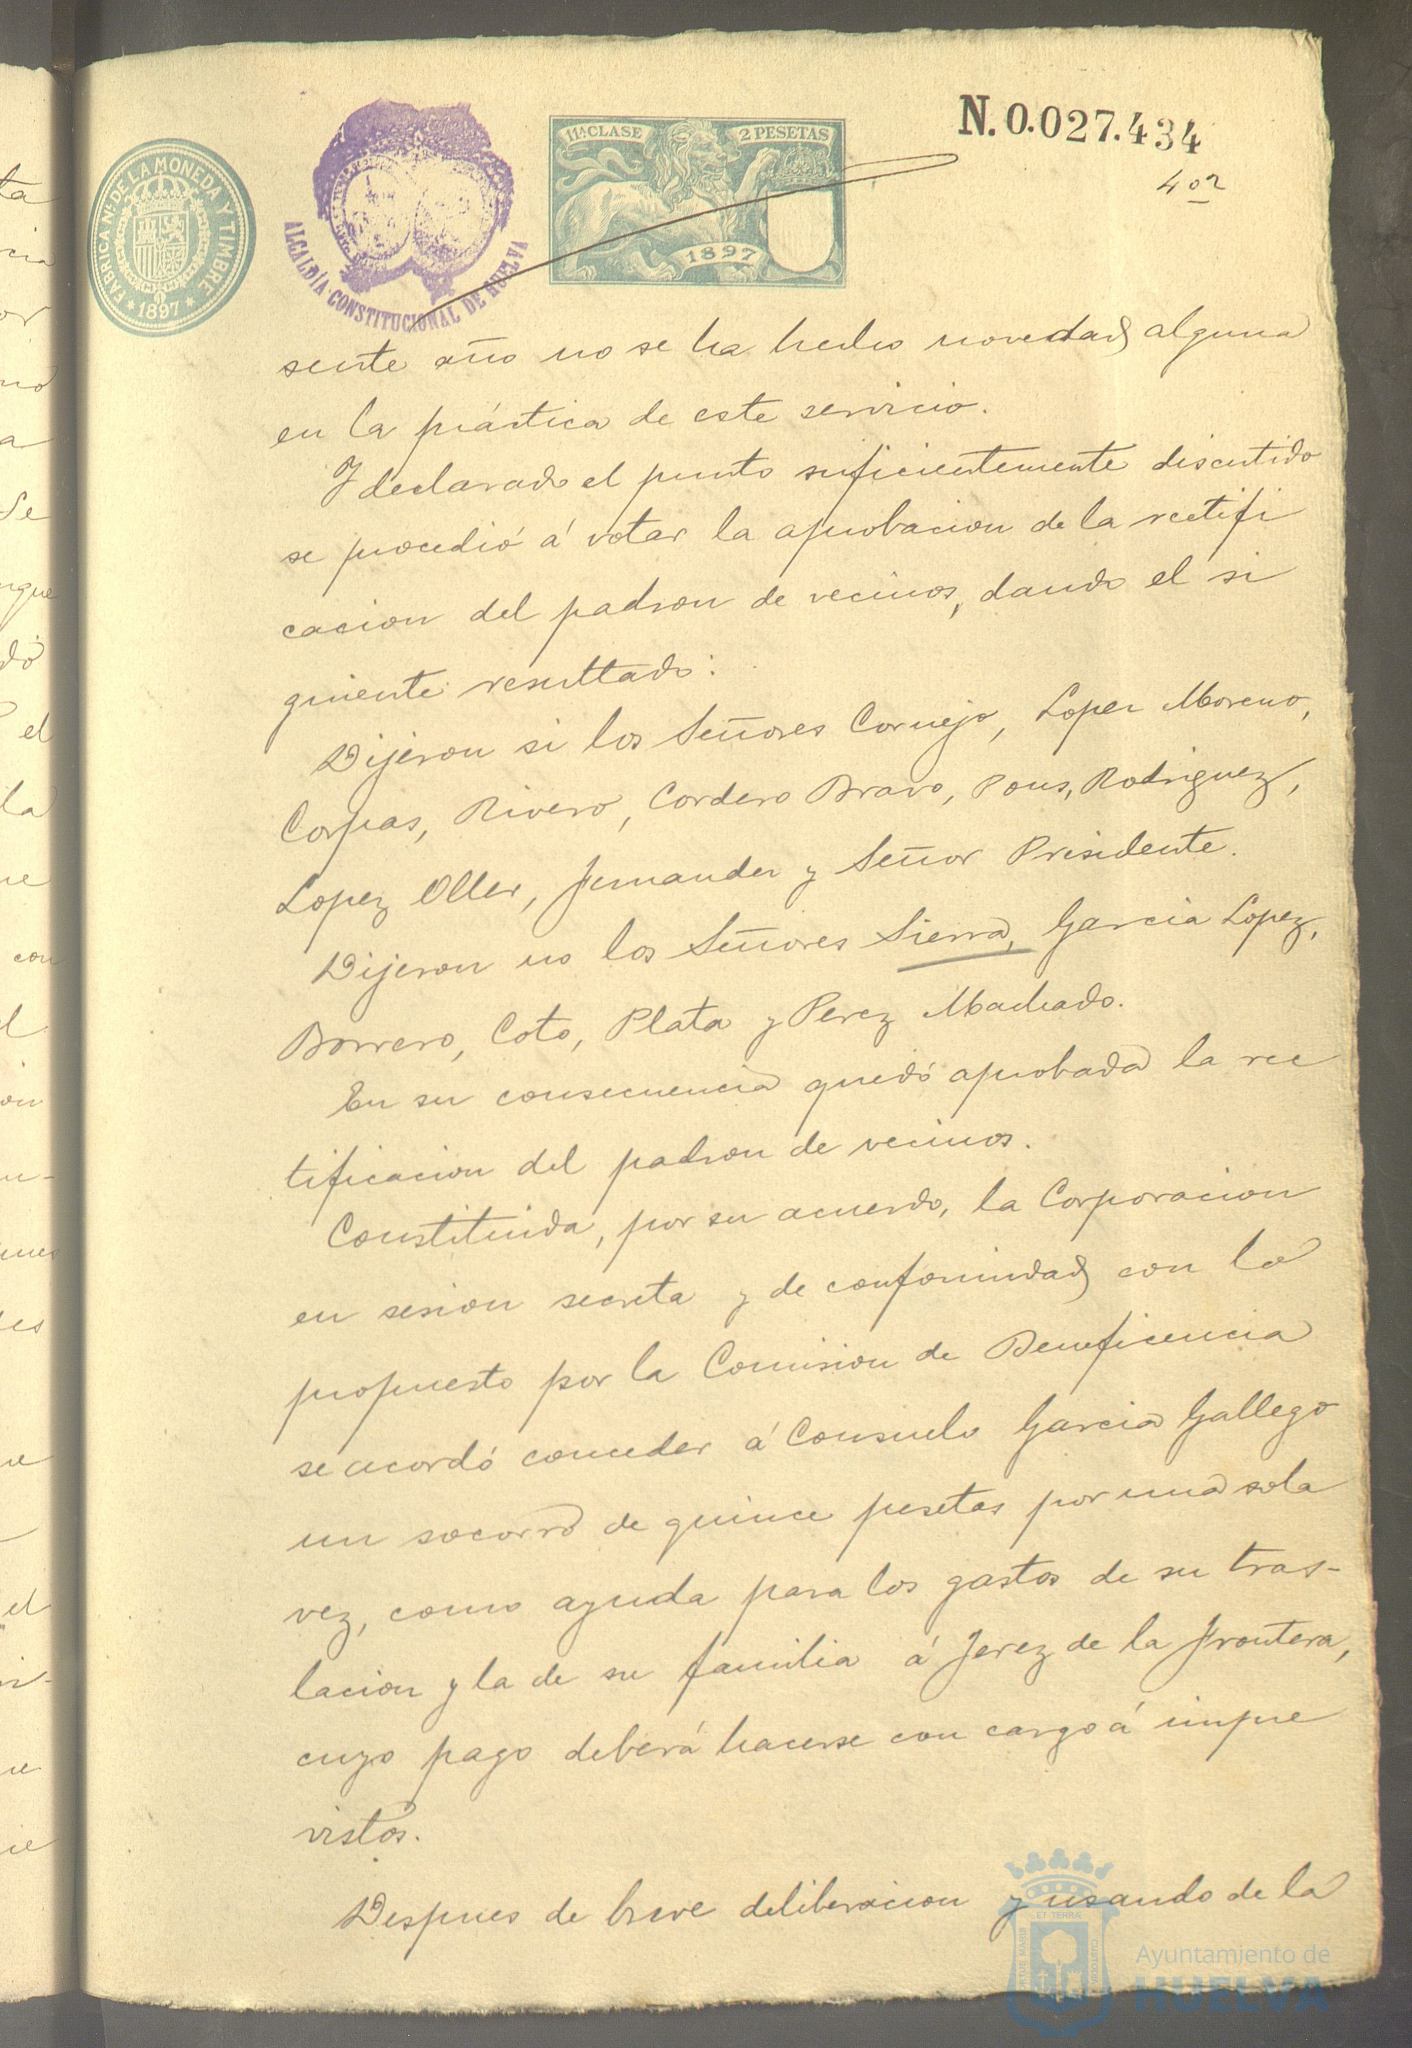 FABRICA NL. DE LA MONEDA Y TIMBRE
1897
ALCALDÍA CONSTITUCIONAL DE HUELVA
11ª CLASE
2 PESETAS
1897
N. 0.027.434
sente año no se ha hecho novedad alguna
en la práctica de este servicio.
Y declarado el punto suficientemente discutido
se procedió á votar la aprobacion de la rectifi
cacion del padron de vecinos, dando el si
guiente resultado:
Dijeron si los Señores Cornejo, Lopez Moreno,
Corpas, Rivero, Cordero Bravo, Pons, Rodriguez,
Lopez Oller, Fernandez y Señor Presidente.
Dijeron no los Señores Sierra, Garcia Lopez,
Borrero, Coto, Plata y Perez Machado.
En su consecuencia quedó aprobada la rec
tificacion del padron de vecinos.
Constituida, por su acuerdo, la Corporacion
en sesion secreta y de conformidad con lo
propuesto por la Comision de Beneficencia
se acordó conceder á Consuelo Garcia Gallego
un socorro de quince pesetas por una sola
vez, como ayuda para los gastos de su tras-
lacion y la de su familia á Jerez de la Frontera,
cuyo pago deberá hacerse con cargo á impre
vistos.
Despues de breve deliberacion y usando de la
Ayuntamiento de
HUELVA